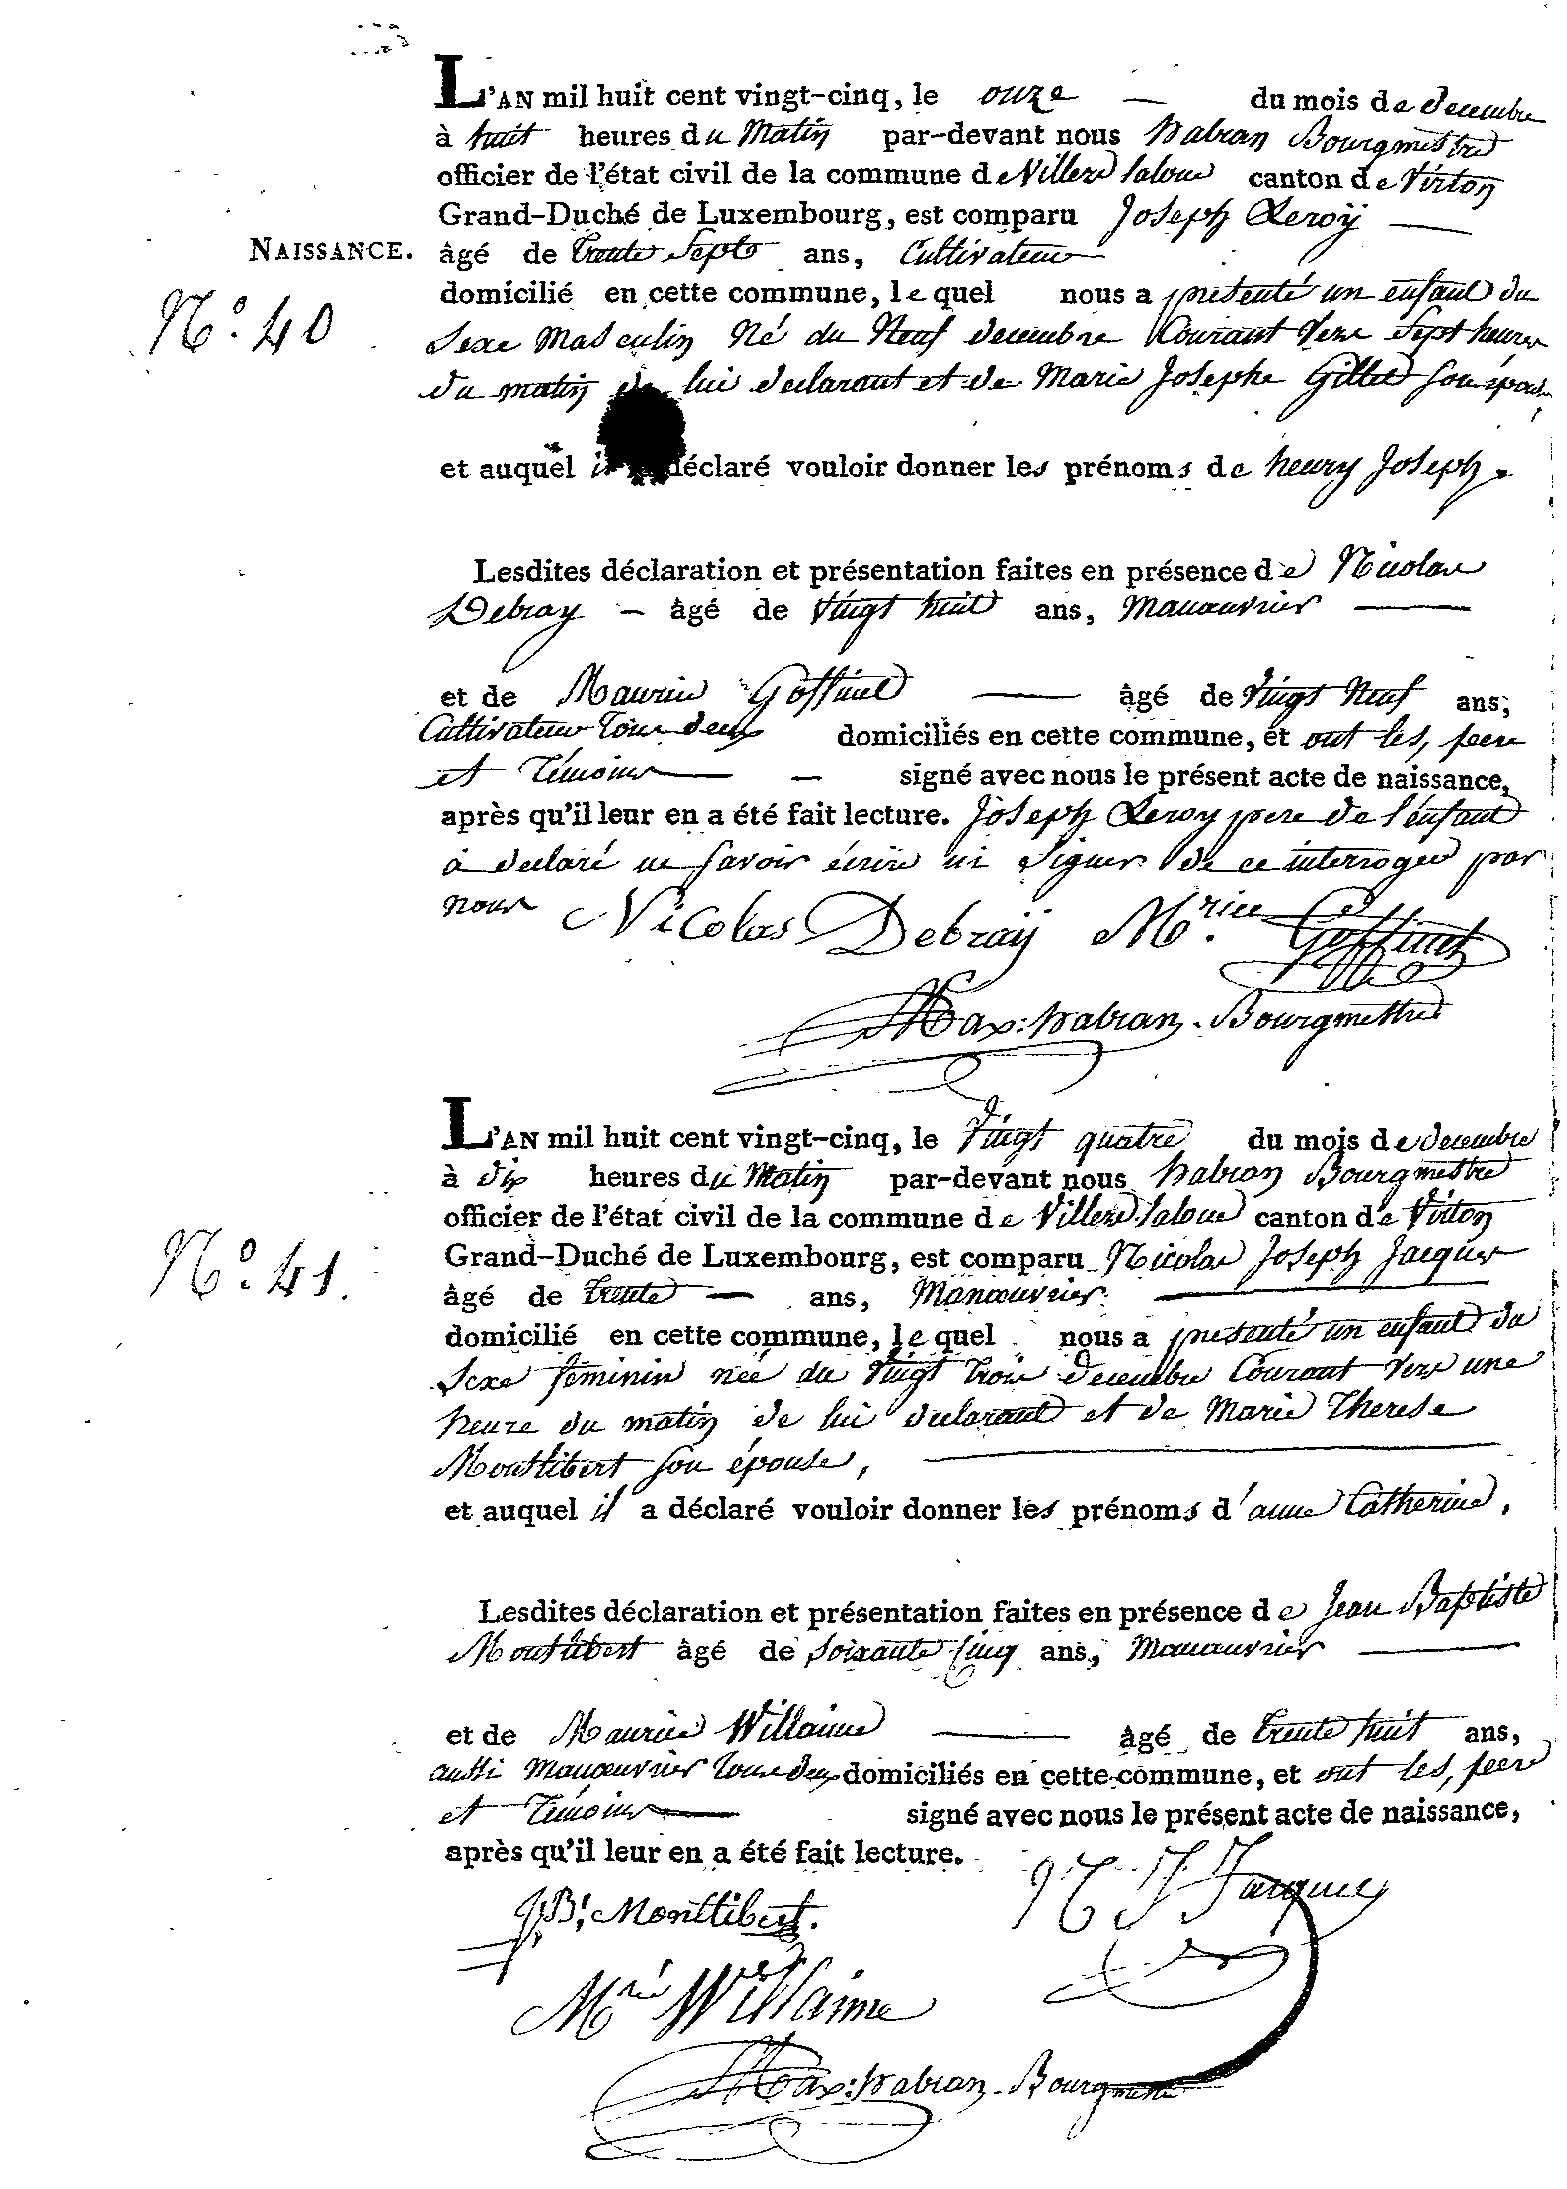 L'AN mil huit cent vingt-cinq, le onze — du mois de decembre
à huit heures du Matin par-devant nous habran Bourgmestre
officier de l'état civil de la commune de Villers laloue canton de Virton
Grand-Duché de Luxembourg, est comparu Joseph Leroÿ —
NAISSANCE. âgé de trente Sept ans, Cultivateur
domicilié en cette commune, le quel nous a presenté un enfant du
N.º 40
Sexe Masculin Né du Neuf decembre Courant Vers Sept heures
du matin de lui declarant et de Marie Josephe Gillet son épouse,
et auquel il déclaré vouloir donner les prénoms de henry Joseph.
Lesdites déclaration et présentation faites en présence de Nicolas
Debray — âgé de Vingt huit ans, Manœuvrier —
et de Maurice Goffinet — âgé de Vingt Neuf ans,
Cultivateur Tous deux domiciliés en cette commune, et ont les,
et Témoins — — signé avec nous le présent acte de naissance,
après qu'il leur en a été fait lecture. Joseph Leroy pere de l'enfant
a declaré ne savoir écrire ni Signer de ce interrogé par
nous Nicolas Debraÿ M.rice Goffinet
Max: habran. Bourgmestre
L'AN mil huit cent vingt-cinq, le Vingt quatre du mois de decembre
à dix heures du Matin par-devant nous habran Bourgmestre
officier de l'état civil de la commune de Villers laloue canton de Virton
N.º 41.
Grand-Duché de Luxembourg, est comparu Nicolas Joseph Jacques
âgé de trente — ans, Manœuvrier. —
domicilié en cette commune, le quel nous a presenté un enfant du
Sexe féminin née du Vingt trois Decembre Courant Vers une
heure du matin de lui declarant et de Marie Therese
Montlibert son épouse, —
et auquel il a déclaré vouloir donner les prénoms d'anne Catherine,
Lesdites déclaration et présentation faites en présence de Jean Baptiste
Montlibert âgé de soixante cinq ans, Manœuvrier —
et de Maurice Willaime — âgé de trente huit ans,
aussi Manœuvrier Tous deux domiciliés en cette commune, et ont les,
et Témoins — signé avec nous le présent acte de naissance,
après qu'il leur en a été fait lecture.
J.B.t Montlibert. N J Jacques
M.rice Willaime
Max: habran. Bourgmestre